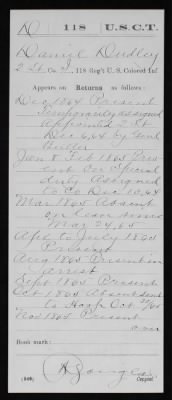 D 118 U.S.C.T.
Daniel Dudley
2 Lt., Co. , 118 Reg't U. S. Colored Inf.
Appears on Returns as follows:
Dec 1864 Present
Temporarily assigned
Appointed 2 Lt
Dec 6, 64 by Genl
Butler
Jan & Feb 1865 Pres
ent On Special
duty Assigned
to Co Dec 10, 64
Mar 1865 Absent
on leave since
Mar 24, 65
Apl to July 1865
Present
Aug 1865 Present in
arrest
Sept 1865 Present
Oct 1865 Absent sent
to Hosp Oct /65
Nov 1865 Present
over
Book mark:
(546)
Copyist.